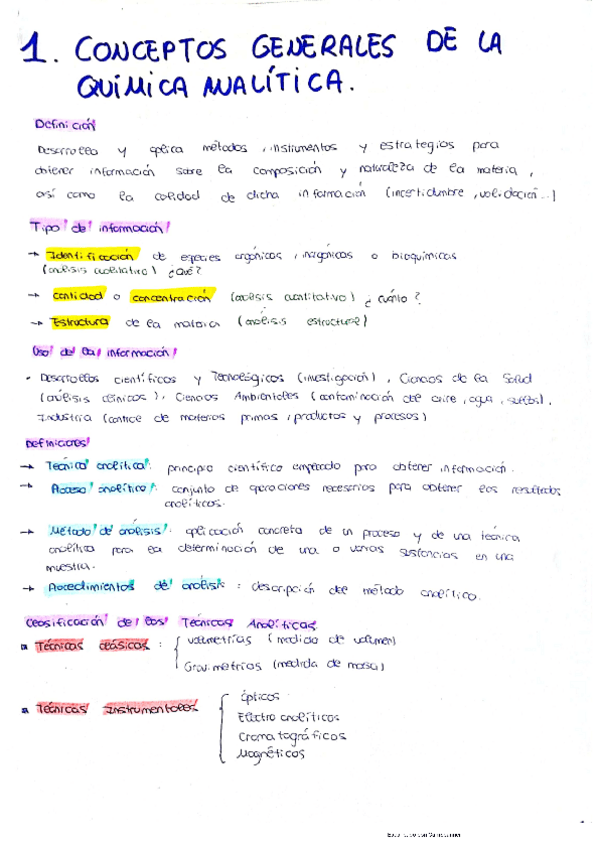 1. CONCEPTOS GENERALES DE LA
QUÍMICA ANALÍTICA.
Definición
Desarrolla y aplica métodos, instrumentos y estrategias para
obtener información sobre la composición y naturaleza de la materia,
así como la calidad de dicha información (incertidumbre, validación...)
Tipo de información
→ Identificación de especies orgánicas, inorgánicas o bioquímicas
(análisis cualitativo) ¿Qué?
→ Cantidad o concentración (análisis cuantitativo) ¿cuánto?
→ Estructura de la materia (análisis estructural)
Uso de la información
• Desarrollos científicos y Tecnológicos (investigación), Ciencias de la Salud
(análisis clínicos), Ciencias Ambientales (contaminación del aire, agua, suelos),
Industria (control de materias primas, productos y procesos)
Definiciones
→ Técnica analítica: principio científico empleado para obtener información.
→ Proceso analítico: conjunto de operaciones necesarias para obtener los resultados
analíticos.
→ Método de análisis: aplicación concreta de un proceso y de una técnica
analítica para la determinación de una o varias sustancias en una
muestra.
→ Procedimientos de análisis: descripción del método analítico.
Clasificación de las Técnicas Analíticas
Técnicas clásicas: { Volumetrías (medida de volumen)
Gravimetrías (medida de masa)
Técnicas Instrumentales { Ópticos
Electroanalíticos
Cromatográficos
Magnéticos